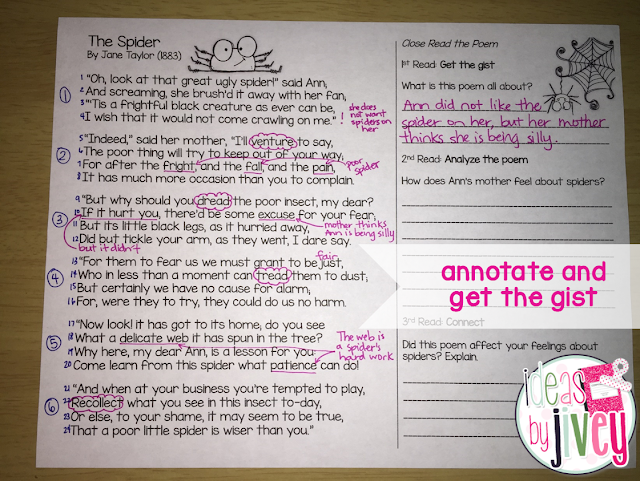 The Spider
By Jane Taylor (1883)
① 1 "Oh, look at that great ugly spider!" said Ann;
2 And screaming, she brush'd it away with her fan;
3 "'Tis a frightful black creature as ever can be,
4 I wish that it would not come crawling on me."
! she does not want spiders on her
② 5 "Indeed," said her mother, "I'll venture to say,
6 The poor thing will try to keep out of your way;
7 For after the fright, and the fall, and the pain,
8 It has much more occasion than you to complain.
poor spider
③ 9 "But why should you dread the poor insect, my dear?
10 If it hurt you, there'd be some excuse for your fear;
11 But its little black legs, as it hurried away,
12 Did but tickle your arm, as they went, I dare say.
but it didn't
mother thinks Ann is being silly
④ 13 "For them to fear us we must grant to be just,
fair
14 Who in less than a moment can tread them to dust;
15 But certainly we have no cause for alarm;
16 For, were they to try, they could do us no harm.
⑤ 17 "Now look! it has got to its home; do you see
18 What a delicate web it has spun in the tree?
19 Why here, my dear Ann, is a lesson for you:
20 Come learn from this spider what patience can do!
The web is a spider's hard work
⑥ 21 "And when at your business you're tempted to play,
22 Recollect what you see in this insect to-day,
23 Or else, to your shame, it may seem to be true,
24 That a poor little spider is wiser than you."
Close Read the Poem
1st Read: Get the gist
What is this poem all about?
Ann did not like the
spider on her, but her mother
thinks she is being silly.
2nd Read: Analyze the poem
How does Ann's mother feel about spiders?
annotate and
get the gist
3rd Read: Connect
Did this poem affect your feelings about
spiders? Explain.
ideas
by jivey